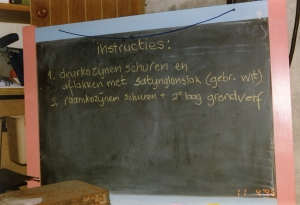 instructies:
1. deurkozijnen schuren en
aflakken met satynglanslak (gebr. wit)
2. raamkozijnen schuren + 2e laag grondverf